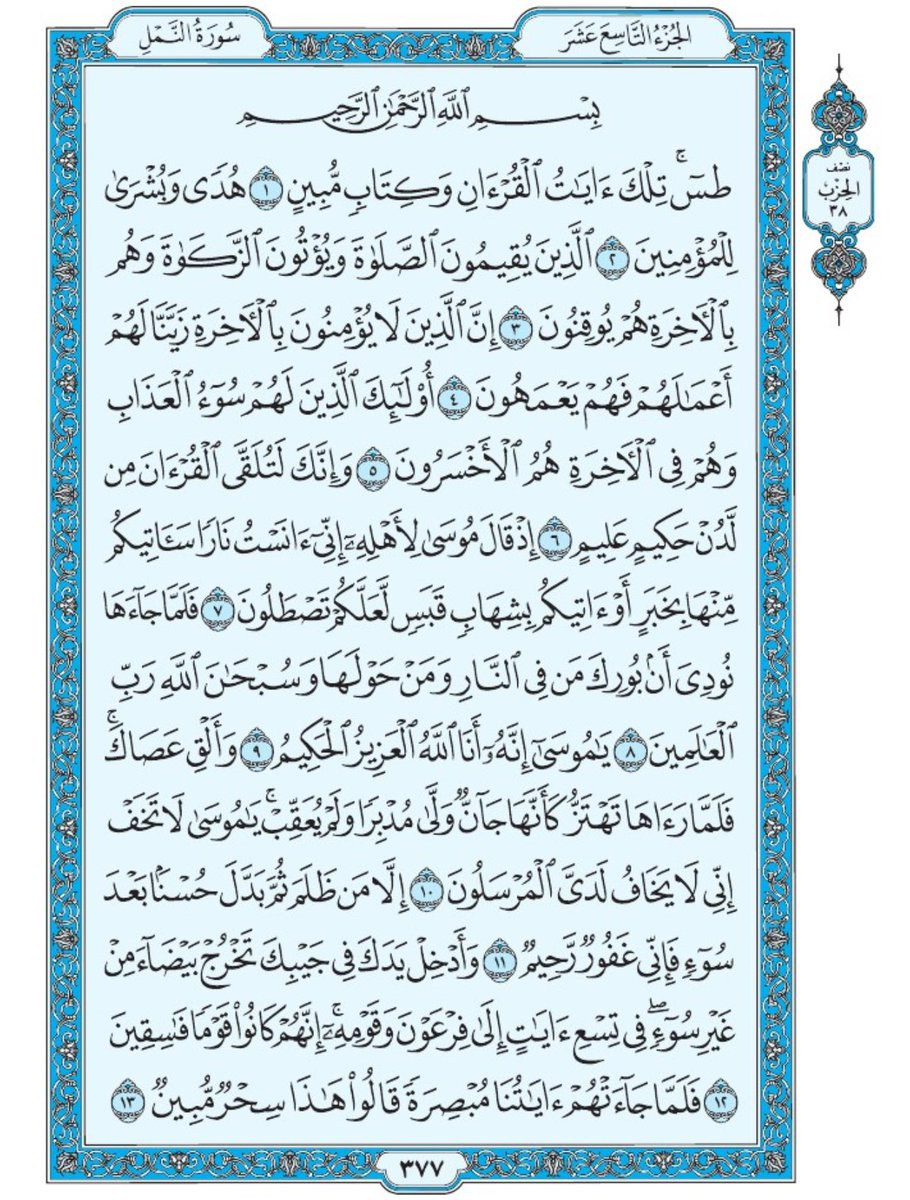 الجُزْءُ التَّاسِعَ عَشَرَ
سُورَةُ النَّمْلِ
نصْف
الحِزْب
٣٨
بِسْمِ ٱللَّهِ ٱلرَّحْمَٰنِ ٱلرَّحِيمِ
طسٓۚ تِلْكَ ءَايَٰتُ ٱلْقُرْءَانِ وَكِتَابٍ مُّبِينٍ ١ هُدًى وَبُشْرَىٰ
لِلْمُؤْمِنِينَ ٢ ٱلَّذِينَ يُقِيمُونَ ٱلصَّلَوٰةَ وَيُؤْتُونَ ٱلزَّكَوٰةَ وَهُم
بِٱلْءَاخِرَةِ هُمْ يُوقِنُونَ ٣ إِنَّ ٱلَّذِينَ لَا يُؤْمِنُونَ بِٱلْءَاخِرَةِ زَيَّنَّا لَهُمْ
أَعْمَٰلَهُمْ فَهُمْ يَعْمَهُونَ ٤ أُو۟لَٰٓئِكَ ٱلَّذِينَ لَهُمْ سُوٓءُ ٱلْعَذَابِ
وَهُمْ فِى ٱلْءَاخِرَةِ هُمُ ٱلْأَخْسَرُونَ ٥ وَإِنَّكَ لَتُلَقَّى ٱلْقُرْءَانَ مِن
لَّدُنْ حَكِيمٍ عَلِيمٍ ٦ إِذْ قَالَ مُوسَىٰ لِأَهْلِهِۦٓ إِنِّىٓ ءَانَسْتُ نَارًا سَـَٔاتِيكُم
مِّنْهَا بِخَبَرٍ أَوْ ءَاتِيكُم بِشِهَابٍ قَبَسٍ لَّعَلَّكُمْ تَصْطَلُونَ ٧ فَلَمَّا جَآءَهَا
نُودِىَ أَنۢ بُورِكَ مَن فِى ٱلنَّارِ وَمَنْ حَوْلَهَا وَسُبْحَٰنَ ٱللَّهِ رَبِّ
ٱلْعَٰلَمِينَ ٨ يَٰمُوسَىٰٓ إِنَّهُۥٓ أَنَا ٱللَّهُ ٱلْعَزِيزُ ٱلْحَكِيمُ ٩ وَأَلْقِ عَصَاكَۚ
فَلَمَّا رَءَاهَا تَهْتَزُّ كَأَنَّهَا جَآنٌّ وَلَّىٰ مُدْبِرًا وَلَمْ يُعَقِّبْۚ يَٰمُوسَىٰ لَا تَخَفْ
إِنِّى لَا يَخَافُ لَدَىَّ ٱلْمُرْسَلُونَ ١٠ إِلَّا مَن ظَلَمَ ثُمَّ بَدَّلَ حُسْنًۢا بَعْدَ
سُوٓءٍ فَإِنِّى غَفُورٌ رَّحِيمٌ ١١ وَأَدْخِلْ يَدَكَ فِى جَيْبِكَ تَخْرُجْ بَيْضَآءَ مِنْ
غَيْرِ سُوٓءٍۖ فِى تِسْعِ ءَايَٰتٍ إِلَىٰ فِرْعَوْنَ وَقَوْمِهِۦٓۚ إِنَّهُمْ كَانُوا۟ قَوْمًا فَٰسِقِينَ
١٢ فَلَمَّا جَآءَتْهُمْ ءَايَٰتُنَا مُبْصِرَةً قَالُوا۟ هَٰذَا سِحْرٌ مُّبِينٌ ١٣
٣٧٧